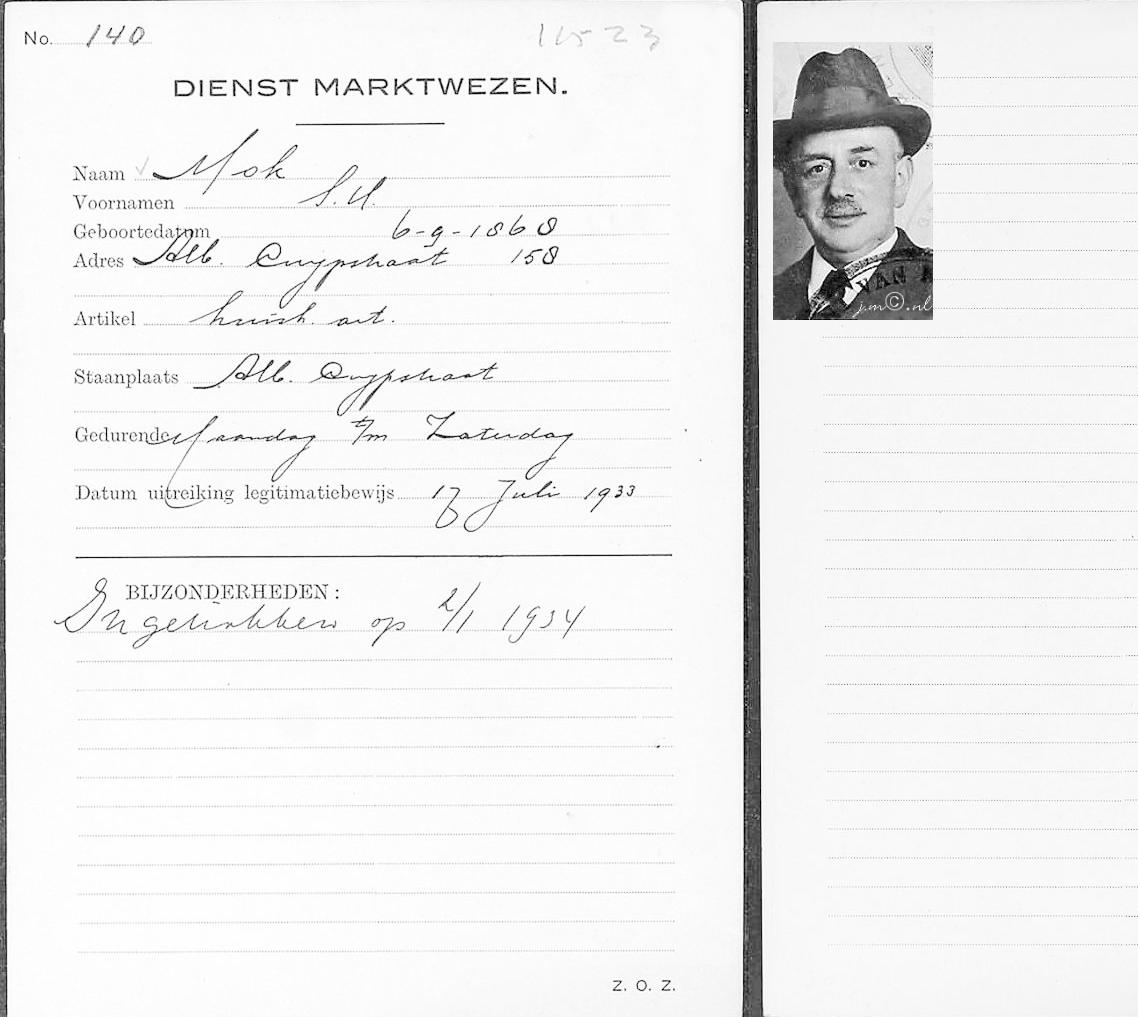 No. 140 11523
DIENST MARKTWEZEN.
Naam Mok
Voornamen S. H.
Geboortedatum 6-9-1868
Adres Alb. Cuypstraat 158
Artikel huish. art.
Staanplaats Alb. Cuypstraat
Gedurende Maandag t/m Zaterdag
Datum uitreiking legitimatiebewijs 17 Juli 1933
BIJZONDERHEDEN:
Ingetrokken op 2/1 1934
Z. O. Z.
VAN
j.m©.nl